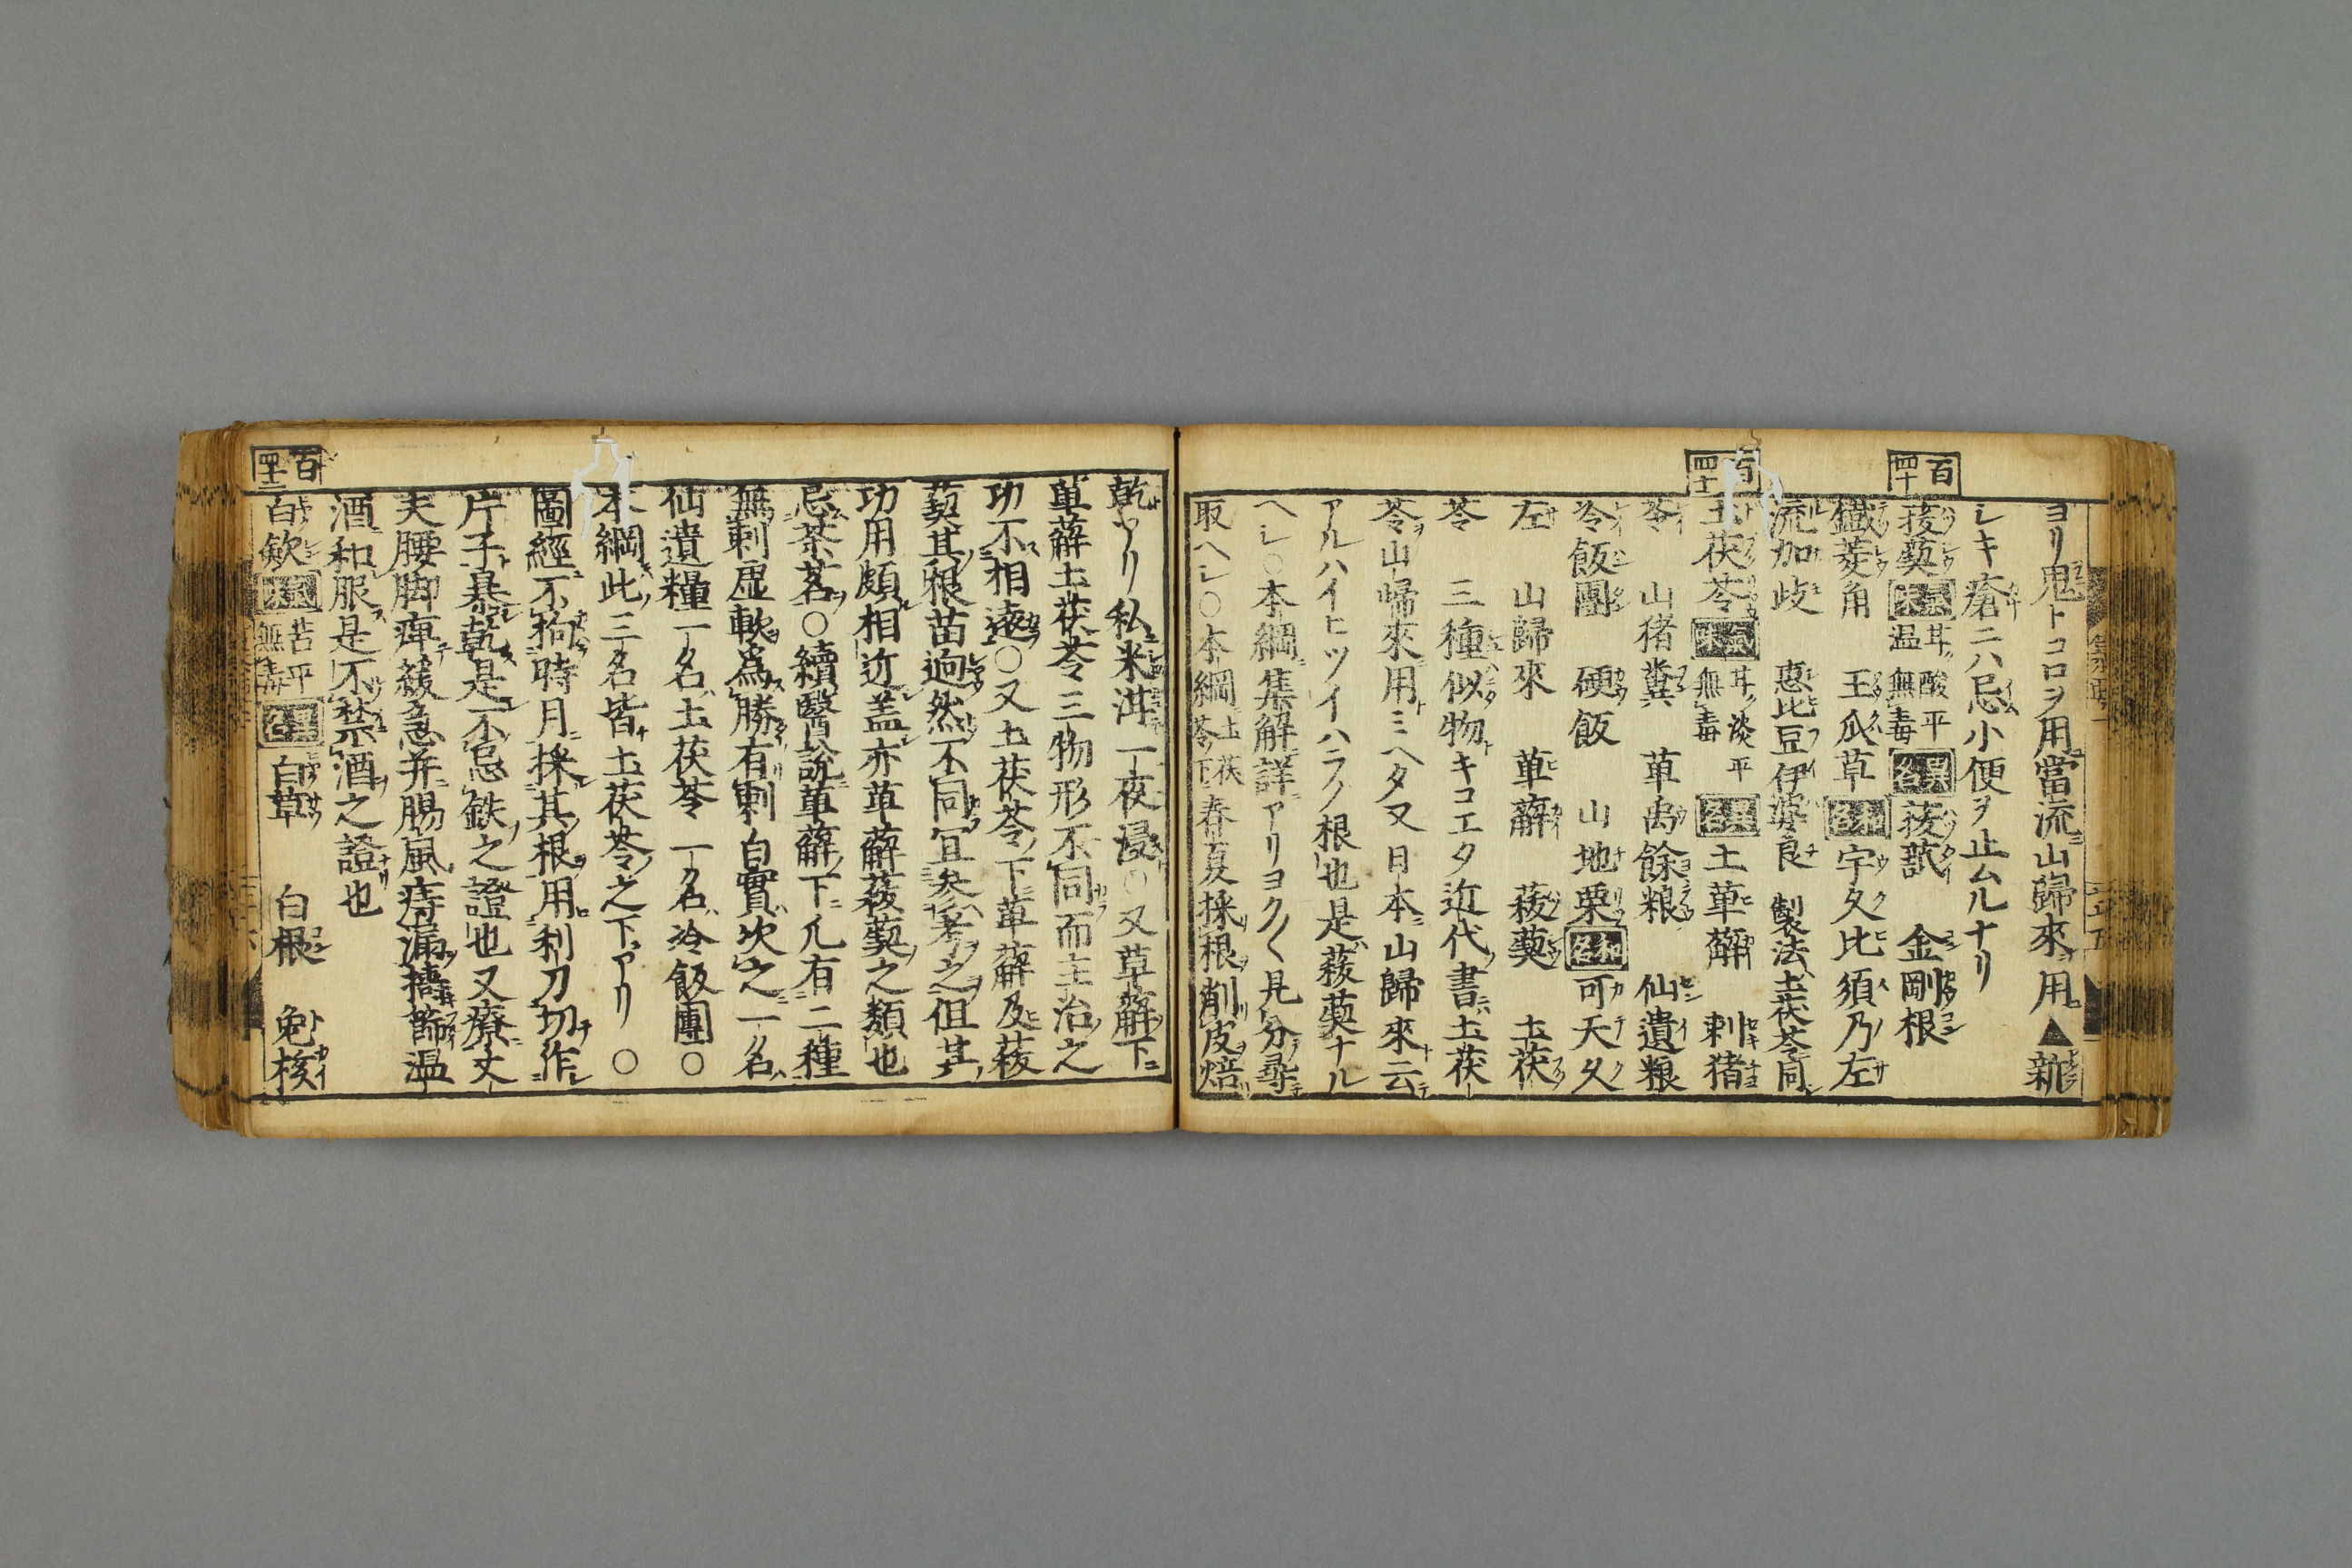 ヨリ鬼トコロヲ用當流ニ山歸來ヲ用▲新
シキ瘡ニハ忌小便ヲ止ムルナリ
百四十
菝葜 氣味 甘酸平温無毒 異名 菝𧿹 金剛根
鐵菱角 王瓜草 和名 宇久比須乃左
流加岐 惠比豆伊婆良 製法土茯苓同
百四十一
土茯苓 氣味 甘淡平無毒 異名 土萆薢 刺猪
苓 山猪糞 草禹餘粮 仙遺粮
冷飯團 硬飯 山地栗 和名 可天久
左 山歸來 萆薢 菝葜 土茯
苓 三種似物キコエタ近代ノ書ニ土茯
苓ヲ山歸來ニ用ミヘタ又日本ニ山歸來ト云テ
アルハイヒツイハラノ根也是ハ菝葜ナル
ヘシ○本綱集解ニ詳アリヨク〱見分尋テ
取ヘシ○本綱土茯苓下春夏採根ヲ削皮ヲ焙
乾トアリ私ニ米泔一夜浸○又草薢ノ下ニ
萆薢土茯苓三物形不同而主治之
功不相遠○又土茯苓ノ下萆薢及菝
葜其根苗逈然不同宜参考之但其
功用頗相近蓋亦萆薢菝葜之類也
忌茶茗○續醫説萆薢ノ下ニ凡有二種
無刺虛軟爲勝有刺白實次之一ノ名ハ
仙遺糧一名土茯苓一名冷飯團○
本綱此三名皆土茯苓之下アリ○
圖經不拘時月採其根用利刀切作
片子暴乾是不忌鉄之證也又療丈
夫腰脚痺緩急并腸風痔漏擣篩温
酒和服是不禁酒之證也
百四十二
白斂 氣味 苦平無毒 異名 白草 白根 兔核